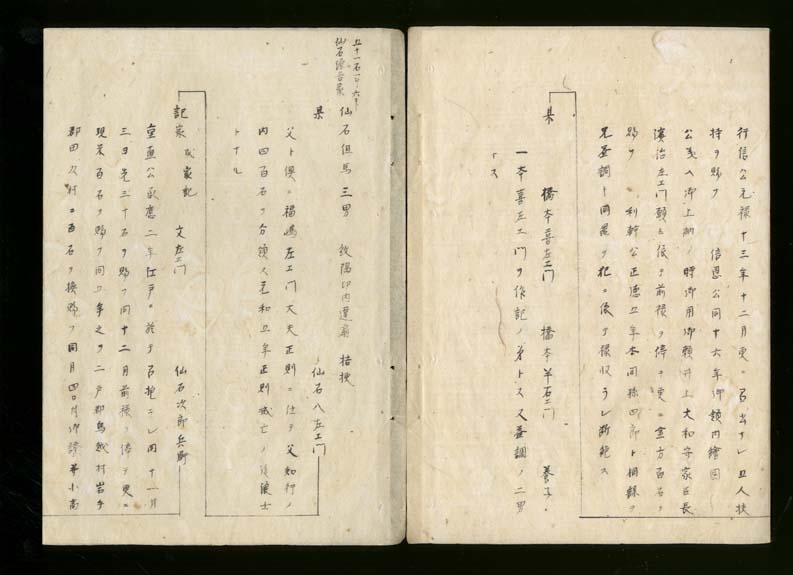 行信公元禄十三年十二月更ニ召出サレ五人扶
持ヲ賜フ 信恩公同十六年御領内繪図
公義ヘ御上納ノ時御用御頼井上大和守家臣長
濱治左エ門願ニ依テ前禄ヲ停テ更ニ金方百石ヲ
賜フ 利幹公正徳五年本間孫四郎ト桐縣ヲ
兄益調ト同罪ヲ犯ニ依テ禄収ラレ断絶ス
某 橋本喜左エ門 橋本半右エ門 養子
一本喜左エ門ヲ作記ノ弟トス又益調ノ二男
トス
五十一石一斗六升
仙石
仙石但馬三男 紋陽印内違扇 桔梗
仙石八左エ門
某
父ト倶ニ福嶋左エ門大夫正則ニ仕テ父知行ノ
内四百石ヲ分領ス元和五年正則滅亡ノ後浪士
トナル
記家 或家記 文左エ門 仙石次郎兵衛
重直公承應二年江戸ニ於テ召抱ラレ同十一月
三日先三十石ヲ賜フ同十二月前禄ヲ停テ更ニ
現米百石ヲ賜フ同四年之ヲ二戸郡鳥越村岩手
郡田頭村ニ百石ヲ換賜フ同月四日御證